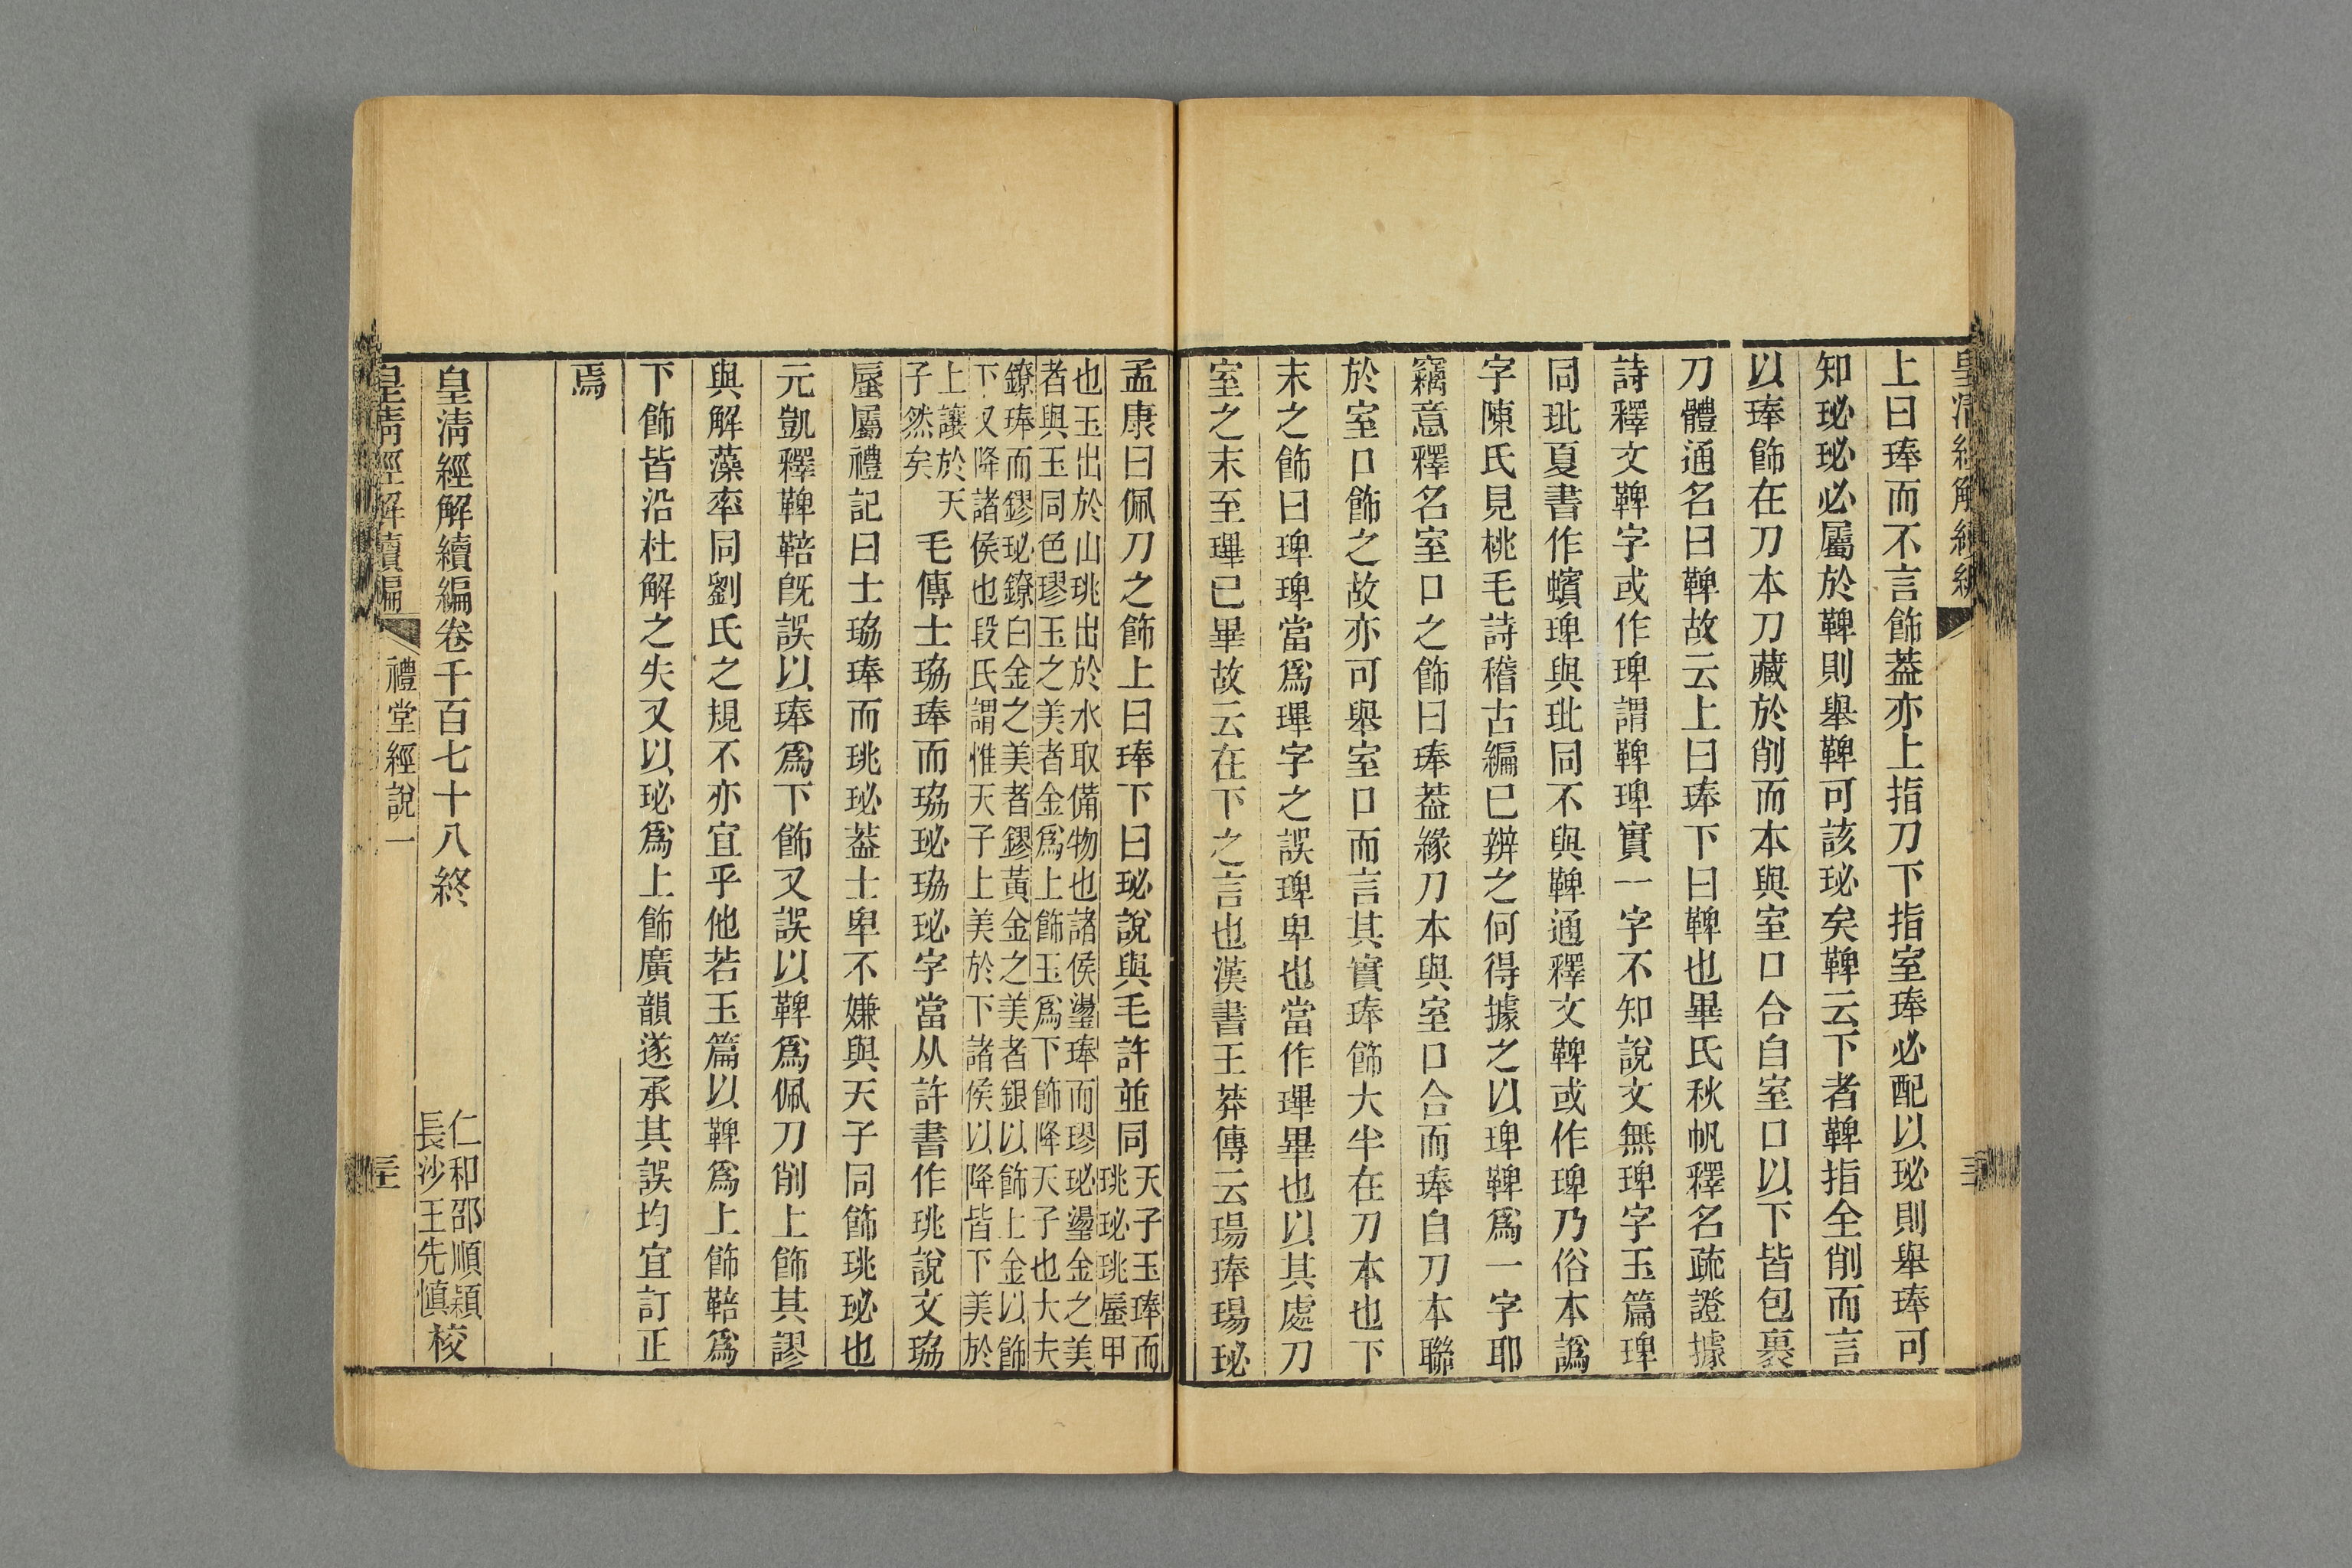 皇清經解續編
上曰琫而不言飾葢亦上指刀下指室琫必配以珌則舉琫可
知珌珌必屬於鞞則舉鞞可該珌矣鞞云下者鞞指全削而言
以琫飾在刀本刀藏於削而本與室口合自室口以下皆包裹
刀體通名曰鞞故云上曰琫下曰鞞也畢氏秋帆釋名疏證據
詩釋文鞞字或作琕謂鞞琕實一字不知說文無琕字玉篇琕
同玭夏書作蠙琕與玭同不與鞞通釋文鞞或作琕乃俗本譌
字陳氏見桃毛詩稽古編已辨之何得據之以琕鞞爲一字耶
竊意釋名室口之飾曰琫葢緣刀本與室口合而琫自刀本聯
於室口飾之故亦可舉室口而言其實琫飾大半在刀本也下
末之飾曰琕琕當爲㻫字之誤琕卑也當作㻫畢也以其處刀
室之末至㻫已畢故云在下之言也漢書王莽傳云瑒琫瑒珌
孟康曰佩刀之飾上曰琫下曰珌說與毛許並同天子玉琫而
珧珌珧蜃甲
也玉出於山珧出於水取備物也諸侯璗琫而璆珌璗金之美
者與玉同色璆玉之美者金爲上飾玉爲下飾降天子也大夫
鐐琫而鏐珌鐐白金之美者鏐黃金之美者銀以飾上金以飾
下又降諸侯也段氏謂惟天子上美於下諸侯以降皆下美於
上讓於天
子然矣
毛傳士珕琫而珕珌珕珌字當从許書作珧說文珕
蜃屬禮記曰士珕琫而珧珌葢士卑不嫌與天子同飾珧珌也
元凱釋鞞鞛旣誤以琫爲下飾又誤以鞞爲佩刀削上飾其謬
與解藻率同劉氏之規不亦宜乎他若玉篇以鞞爲上飾鞛爲
下飾皆沿杜解之失又以珌爲上飾廣韻遂承其誤均宜訂正
焉
皇清經解續編卷千百七十八終
仁和邵順穎
長沙王先愼校
皇清經解續編
禮堂經說一
三